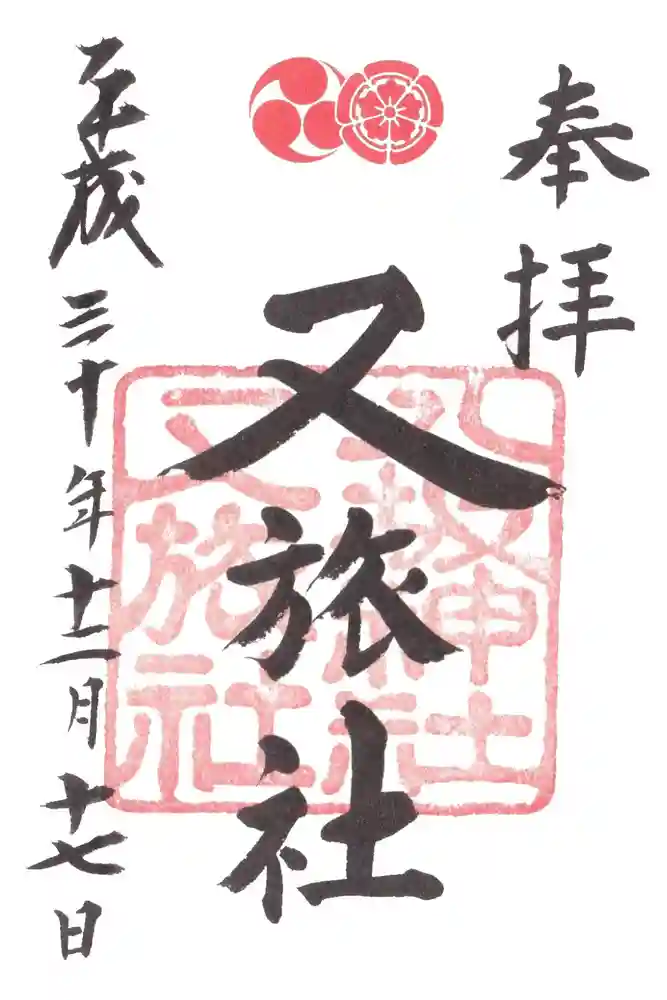 奉拝
又旅社
八坂神社
又旅社
平成三十年十二月十七日